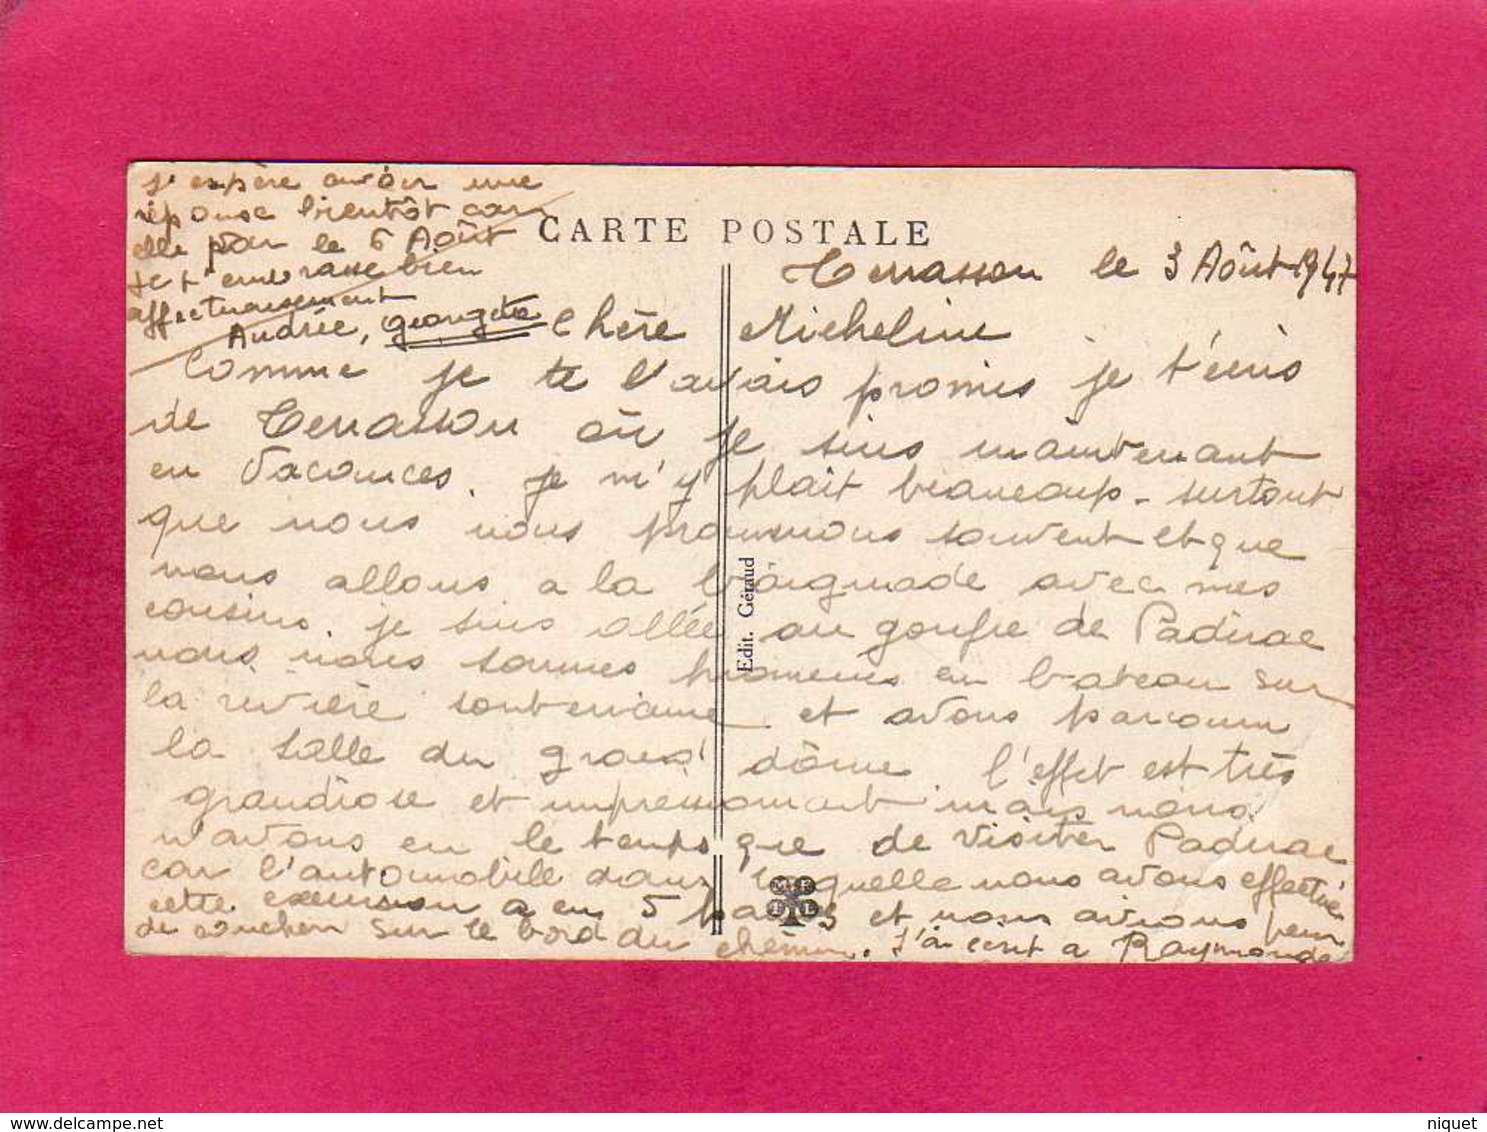 CARTE POSTALE
Terrasson le 3 Août 1947
Chère Micheline
Comme je te l'avais promis je t'écris
de Terrasson où je suis maintenant
en vacances. je m'y plait beaucoup - surtout
que nous nous promenons souvent et que
nous allons a la baignade avec mes
cousins. je suis allée au gouffre de Padirac
nous nous sommes promenés en bateau sur
la rivière souterraine et avons parcouru
la salle du grand dôme. l'effet est très
grandiose et impressionnant mais nous
n'avons eu le temps que de visiter Padirac
car l'automobile dans laquelle nous avons effectué
cette excursion a eu 5 pannes et nous avions peur
de coucher sur le bord du chemin. J'ai écrit a Raymonde
J'espère avoir une
réponse bientôt car
elle par le 6 Août
Je t'embrasse bien
affectueusement
Andrée, georgette
Edit. Géraud
M F
I L
delcampe.net
niquet